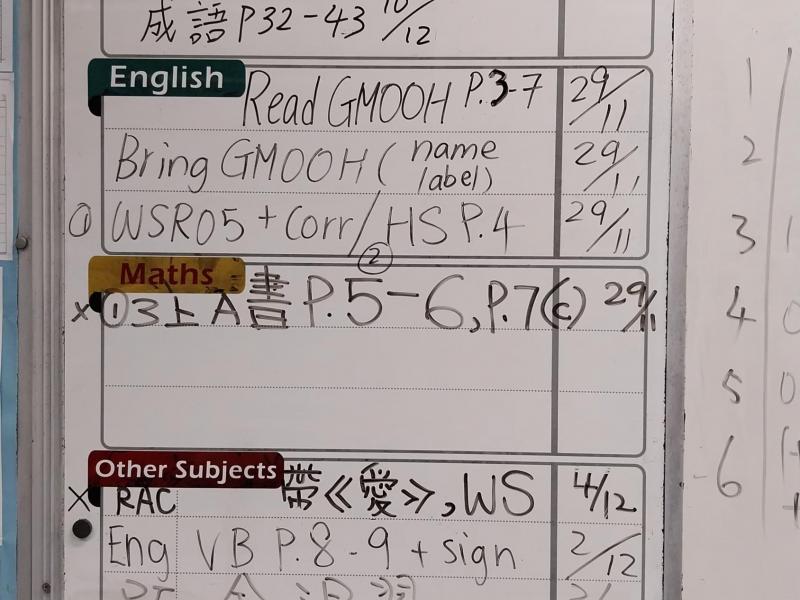 成語 P32-43 10/12
English
Read GMOOH P.3-7 29/11
Bring GMOOH (name label) 29/11
① WSR05 + Corr / ② HS P.4 29/11
Maths
x ① 3上A書 P.5-6, P.7(c) 29/11
Other Subjects
x RAC 帶《愛》, WS 4/12
Eng VB P.8-9 + sign 2/12
1
2
3
4
5
6